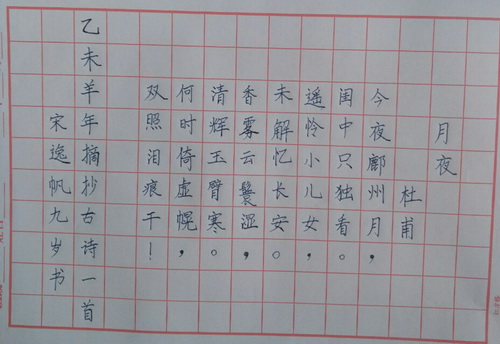 月夜
杜甫
今夜鄜州月，
闺中只独看。
遥怜小儿女，
未解忆长安。
香雾云鬟湿，
清辉玉臂寒。
何时倚虚幌，
双照泪痕干！
乙未羊年摘抄古诗一首
宋逸帆九岁书